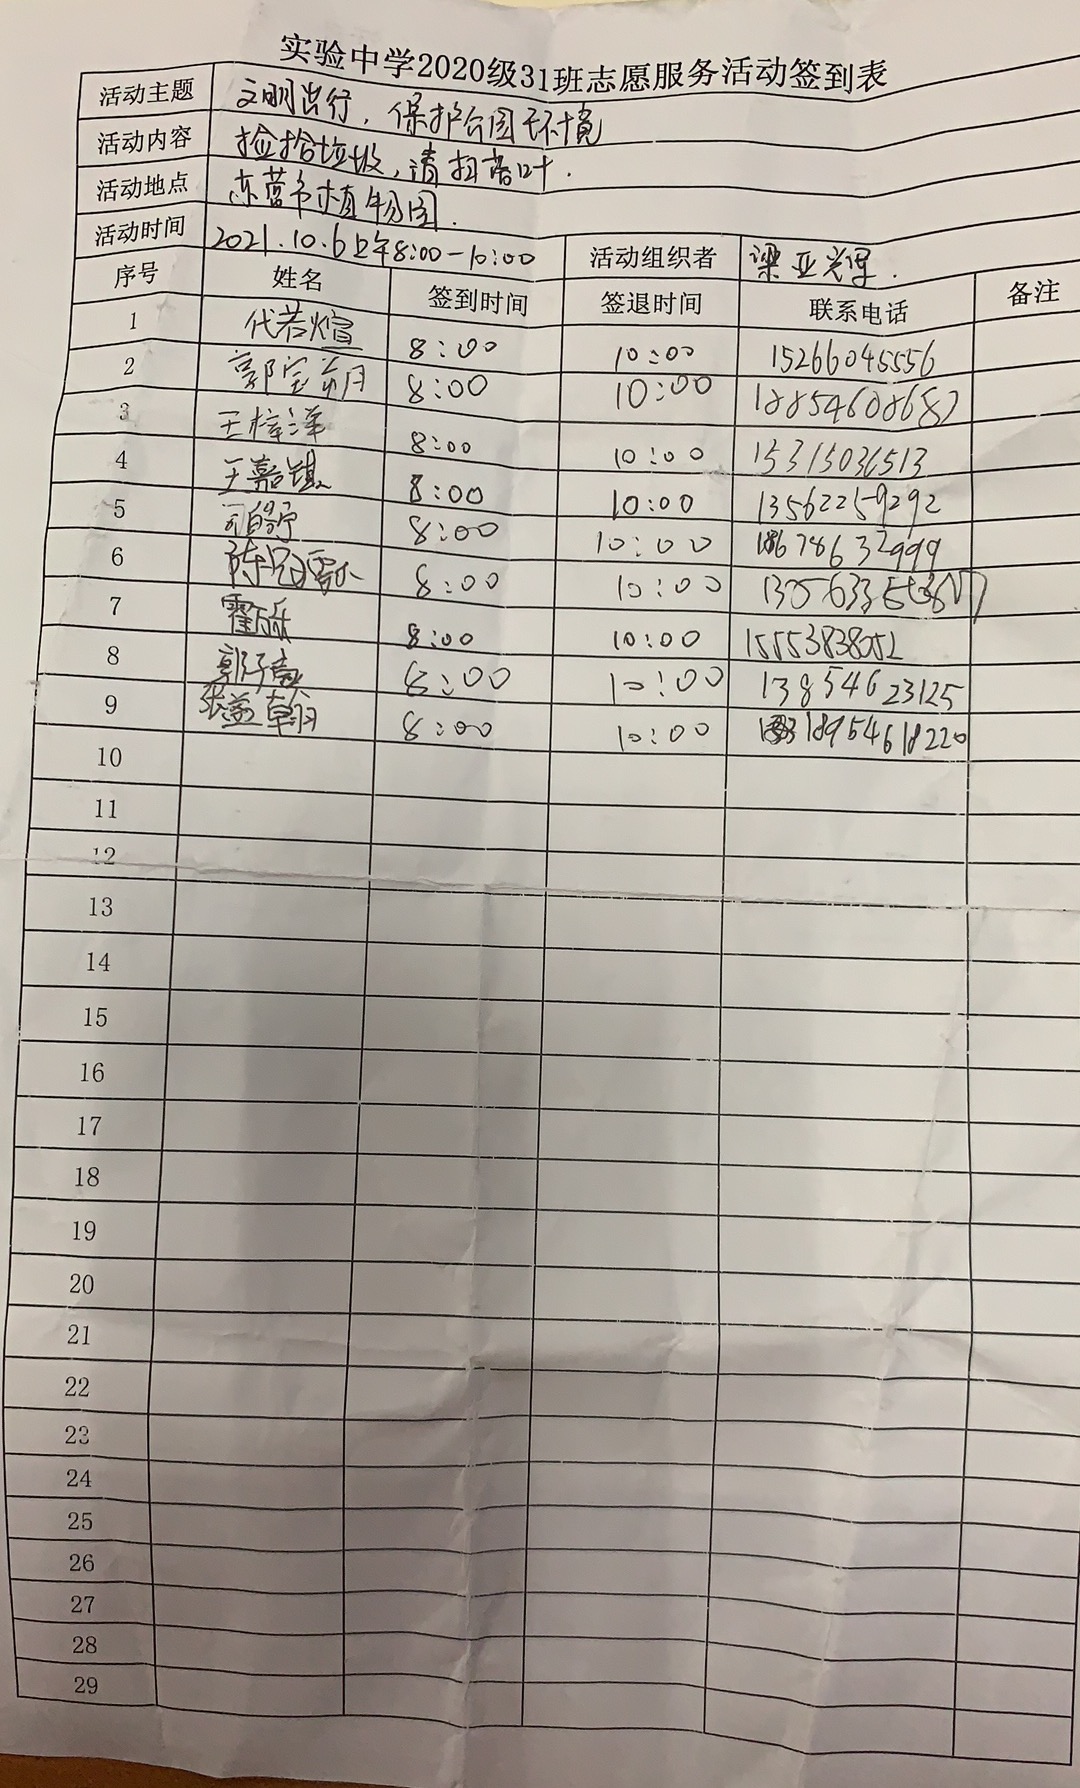 实验中学2020级31班志愿服务活动签到表
活动主题 文明出行，保护公园环境
活动内容 捡拾垃圾，清扫落叶.
活动地点 东营市植物园.
活动时间 2021.10.6上午8:00-10:00 活动组织者 梁亚
序号 姓名 签到时间 签退时间 联系电话 备注
1 代若煊 8:00 10:00 15266045556
2 郭宝月 8:00 10:00 18854608687
3 王梓泽 8:00 10:00 15315036513
4 王嘉 8:00 10:00 13562259292
5 司 8:00 10:00 18678632999
6 陈冠霖 8:00 10:00
7 霍 8:00 10:00 15553838052
8 郭子 8:00 10:00 13854623125
9 张 翰 8:00 10:00 18954618220
10
11
12
13
14
15
16
17
18
19
20
21
22
23
24
25
26
27
28
29